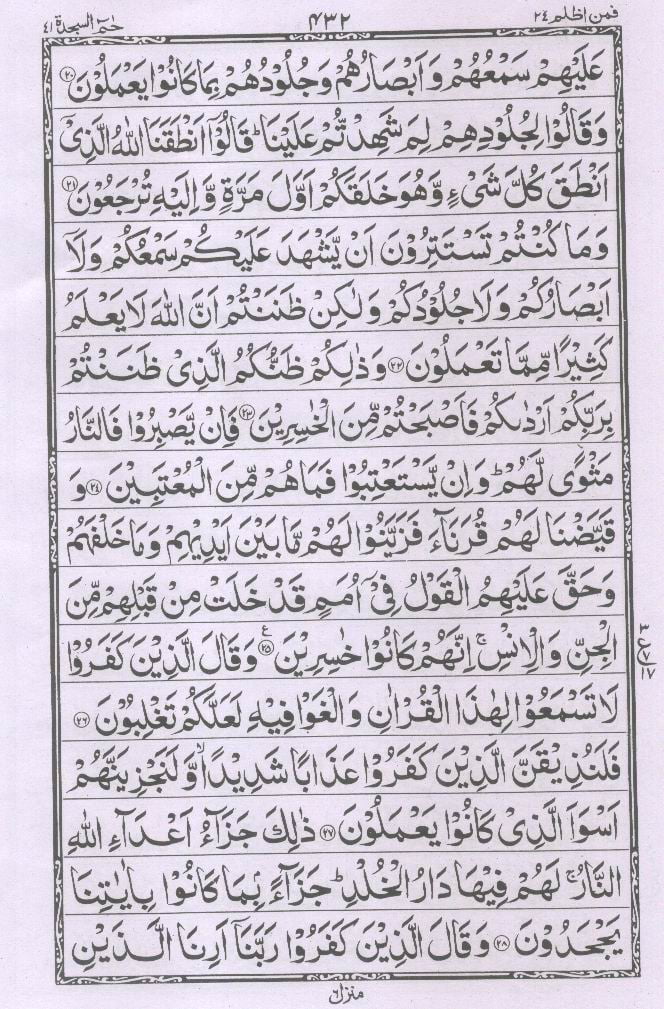 فمن اظلم ٢٤ ٤٣٢ حٰمٓ السجدة ٤١
عَلَيْهِمْ سَمْعُهُمْ وَاَبْصَارُهُمْ وَجُلُوْدُهُمْ بِمَا كَانُوْا يَعْمَلُوْنَ ۝٢٠
وَقَالُوْا لِجُلُوْدِهِمْ لِمَ شَهِدْتُّمْ عَلَيْنَا ؕ قَالُوْۤا اَنْطَقَنَا اللّٰهُ الَّذِىْۤ
اَنْطَقَ كُلَّ شَىْءٍ وَّهُوَ خَلَقَكُمْ اَوَّلَ مَرَّةٍ وَّاِلَيْهِ تُرْجَعُوْنَ ۝٢١
وَمَا كُنْتُمْ تَسْتَتِرُوْنَ اَنْ يَّشْهَدَ عَلَيْكُمْ سَمْعُكُمْ وَلَاۤ
اَبْصَارُكُمْ وَلَا جُلُوْدُكُمْ وَلٰكِنْ ظَنَنْتُمْ اَنَّ اللّٰهَ لَا يَعْلَمُ
كَثِيْرًا مِّمَّا تَعْمَلُوْنَ ۝٢٢ وَذٰلِكُمْ ظَنُّكُمُ الَّذِىْ ظَنَنْتُمْ
بِرَبِّكُمْ اَرْدٰىكُمْ فَاَصْبَحْتُمْ مِّنَ الْخٰسِرِيْنَ ۝٢٣ فَاِنْ يَّصْبِرُوْا فَالنَّارُ
مَثْوًى لَّهُمْ ؕ وَاِنْ يَّسْتَعْتِبُوْا فَمَا هُمْ مِّنَ الْمُعْتَبِيْنَ ۝٢٤ وَ
قَيَّضْنَا لَهُمْ قُرَنَآءَ فَزَيَّنُوْا لَهُمْ مَّا بَيْنَ اَيْدِيْهِمْ وَمَا خَلْفَهُمْ
وَحَقَّ عَلَيْهِمُ الْقَوْلُ فِىْۤ اُمَمٍ قَدْ خَلَتْ مِنْ قَبْلِهِمْ مِّنَ
الْجِنِّ وَالْاِنْسِ ۚ اِنَّهُمْ كَانُوْا خٰسِرِيْنَ ۝٢٥ ع وَقَالَ الَّذِيْنَ كَفَرُوْا
٣ ع ٧ ١٧
لَا تَسْمَعُوْا لِهٰذَا الْقُرْاٰنِ وَالْغَوْا فِيْهِ لَعَلَّكُمْ تَغْلِبُوْنَ ۝٢٦
فَلَنُذِيْقَنَّ الَّذِيْنَ كَفَرُوْا عَذَابًا شَدِيْدًا ۙ وَّلَنَجْزِيَنَّهُمْ
اَسْوَاَ الَّذِىْ كَانُوْا يَعْمَلُوْنَ ۝٢٧ ذٰلِكَ جَزَآءُ اَعْدَآءِ اللّٰهِ
النَّارُ ۚ لَهُمْ فِيْهَا دَارُ الْخُلْدِ ؕ جَزَآءًۢ بِمَا كَانُوْا بِاٰيٰتِنَا
يَجْحَدُوْنَ ۝٢٨ وَقَالَ الَّذِيْنَ كَفَرُوْا رَبَّنَاۤ اَرِنَا الَّذَيْنِ
منزل ٦